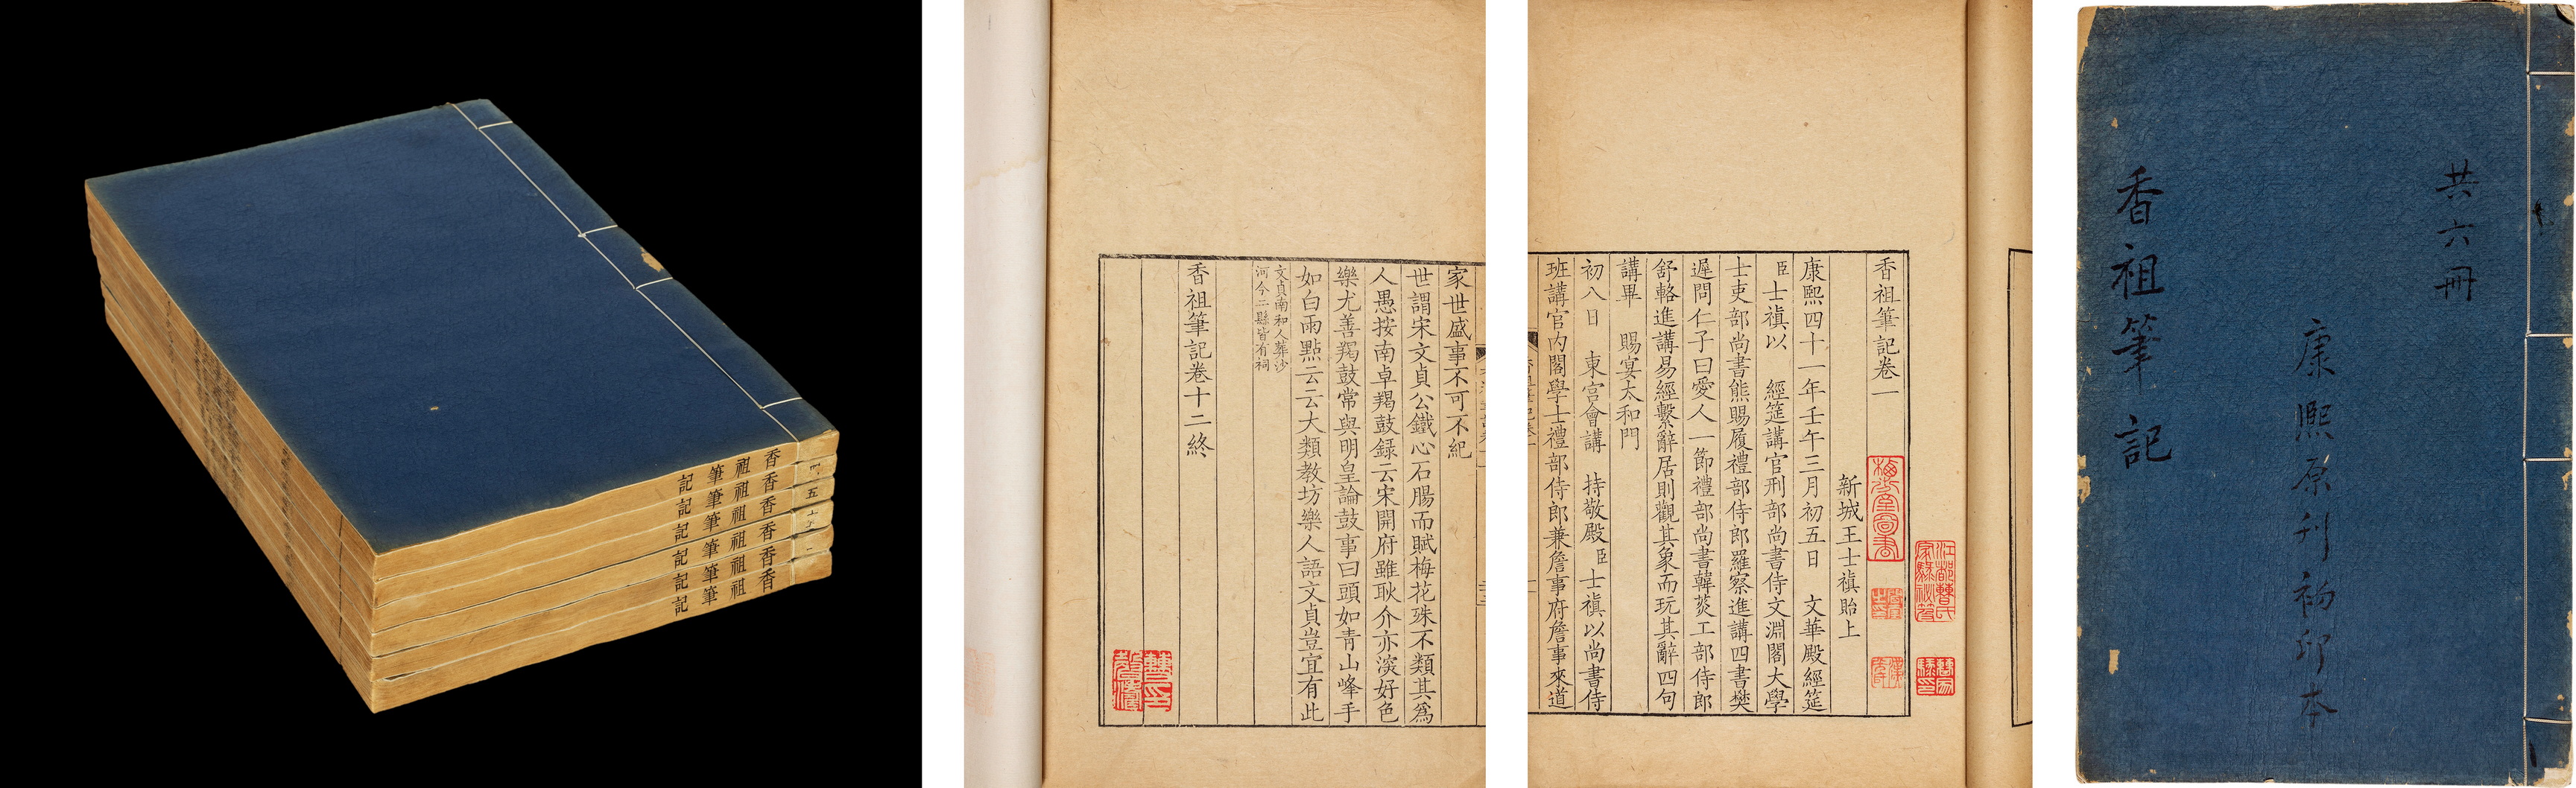 香祖筆記
香祖筆記
香祖筆記
香祖筆記
香祖筆記
香祖筆記
五
一
家世盛事不可不紀
世謂宋文貞公鐵心石腸而賦梅花殊不類其爲
人愚按南卓羯鼓録云宋開府雖耿介亦深好色
樂尤善羯鼓常與明皇論鼓事曰頭如青山峰手
如白雨點云云大類教坊樂人語文貞豈宜有此
文貞南和人葬沙
河今二縣皆有祠
香祖筆記卷十二終
香祖筆記卷一
新城王士禛貽上
康熙四十一年壬午三月初五日　文華殿經筵
臣士禛以　經筵講官刑部尚書侍文淵閣大學
士吏部尚書熊賜履禮部侍郎羅察進講四書樊
遲問仁子曰愛人一節禮部尚書韓菼工部侍郎
舒輅進講易經繫辭居則觀其象而玩其辭四句
講畢　賜宴太和門
初八日　東宫會講　持敬殿臣士禛以尚書侍
班講官内閣學士禮部侍郎兼詹事府詹事來道
江都曹氏
共六冊
康熙原刊初印本
香祖筆記